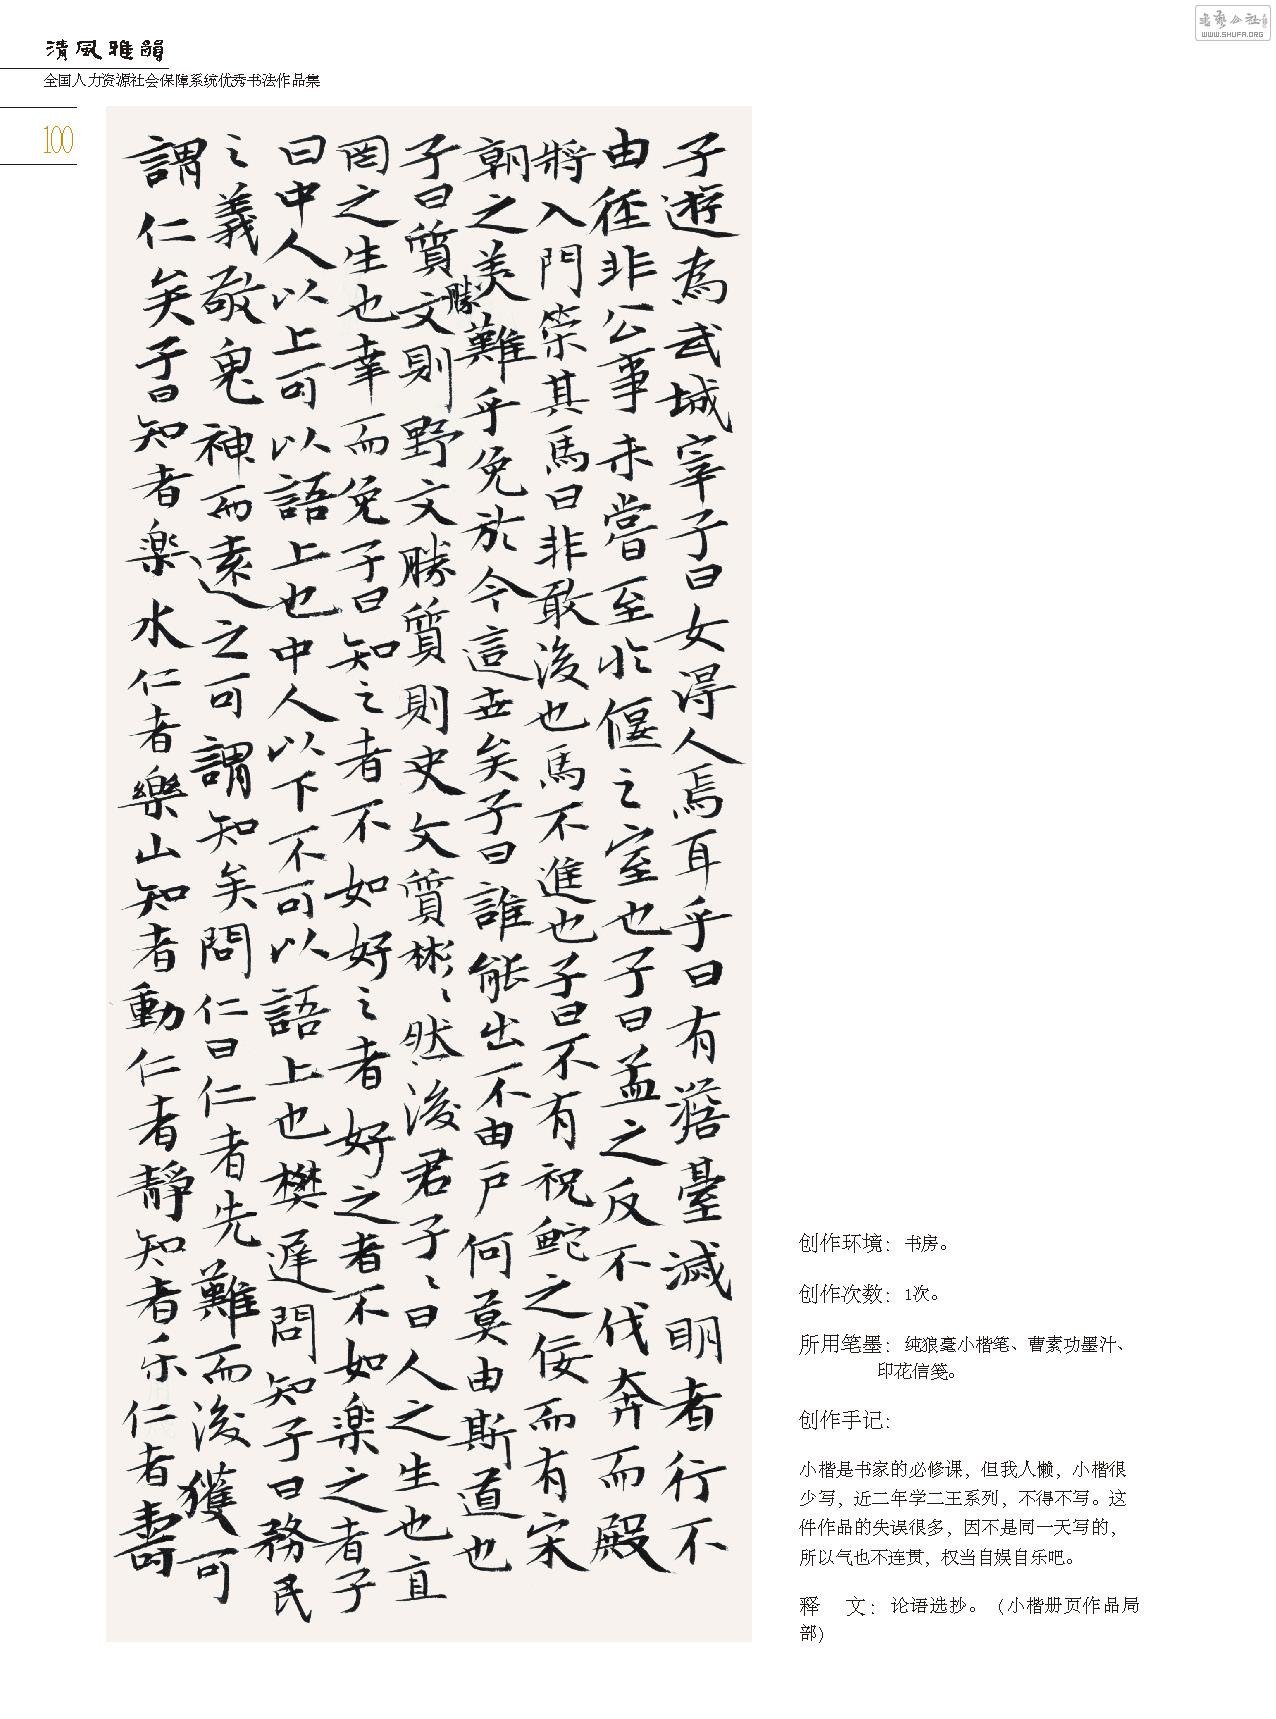 清風雅韻
全国人力资源社会保障系统优秀书法作品集
100
书艺公社
WWW.SHUFA.ORG
子遊為武城宰子曰女得人焉耳乎曰有澹臺滅明者行不
由徑非公事未嘗至於偃之室也子曰孟之反不伐奔而殿
將入門策其馬曰非敢後也馬不進也子曰不有祝鮀之佞而有宋
朝之美難乎免於今這世矣子曰誰能出不由戶何莫由斯道也
子曰質勝文則野文勝質則史文質彬〻然後君子〻曰人之生也直
罔之生也幸而免子曰知之者不如好之者好之者不如楽之者子
曰中人以上可以語上也中人以下不可以語上也樊遲問知子曰務民
之義敬鬼神而遠之可謂知矣問仁曰仁者先難而後獲可
謂仁矣子曰知者楽水仁者樂山知者動仁者靜知者乐仁者壽
创作环境：书房。
创作次数：1次。
所用笔墨：纯狼毫小楷笔、曹素功墨汁、
印花信笺。
创作手记：
小楷是书家的必修课，但我人懒，小楷很
少写，近二年学二王系列，不得不写。这
件作品的失误很多，因不是同一天写的，
所以气也不连贯，权当自娱自乐吧。
释 文：论语选抄。（小楷册页作品局
部）